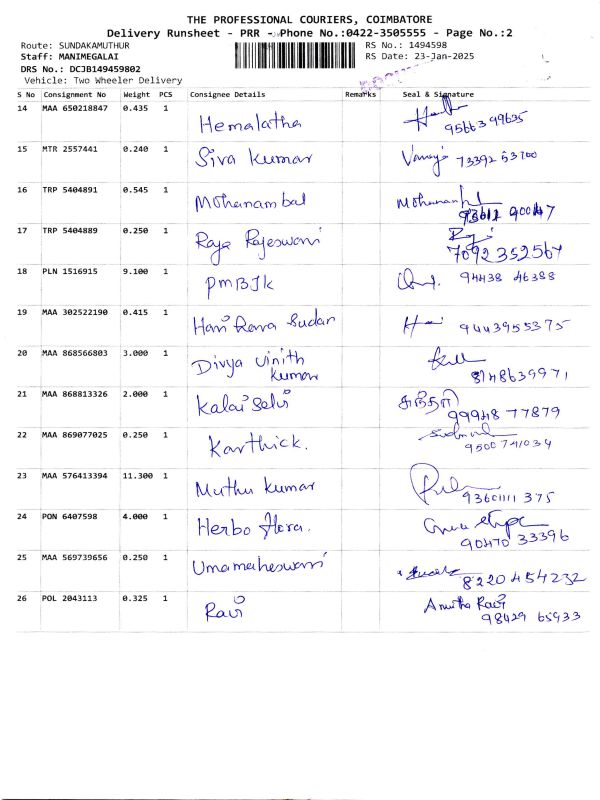 THE PROFESSIONAL COURIERS, COIMBATORE
Delivery Runsheet - PRR - Phone No.:0422-3505555 - Page No.:2
Route: SUNDAKAMUTHUR
RS No.: 1494598
Staff: MANIMEGALAI
RS Date: 23-Jan-2025
DRS No.: DCJB149459802
Vehicle: Two Wheeler Delivery
S No Consignment No Weight PCS Consignee Details Remarks Seal & Signature
14 MAA 650218847 0.435 1 Hemalatha
9566399635
15 MTR 2557441 0.240 1 Siva Kumar 73392 53700
16 TRP 5404891 0.545 1 Mohanambal
17 TRP 5404889 0.250 1 Raja Rajeswari
7092352567
18 PLN 1516915 9.100 1 PMBJK 94438 46388
19 MAA 302522190 0.415 1 Hari Rama Sudan Hari 9443955375
20 MAA 868566803 3.000 1 Divya Vinith
Kumar 8148639971
21 MAA 868813326 2.000 1 Kalai Selvi
99948 77879
22 MAA 869077025 0.250 1 Karthick.
9500741034
23 MAA 576413394 11.300 1 Muthu Kumar
93601111 375
24 PON 6407598 4.000 1 Herbo Flora.
90470 33396
25 MAA 569739656 0.250 1 Umamaheswari
8220454232
26 POL 2043113 0.325 1 Ravi Anitha Ravi
98429 65933